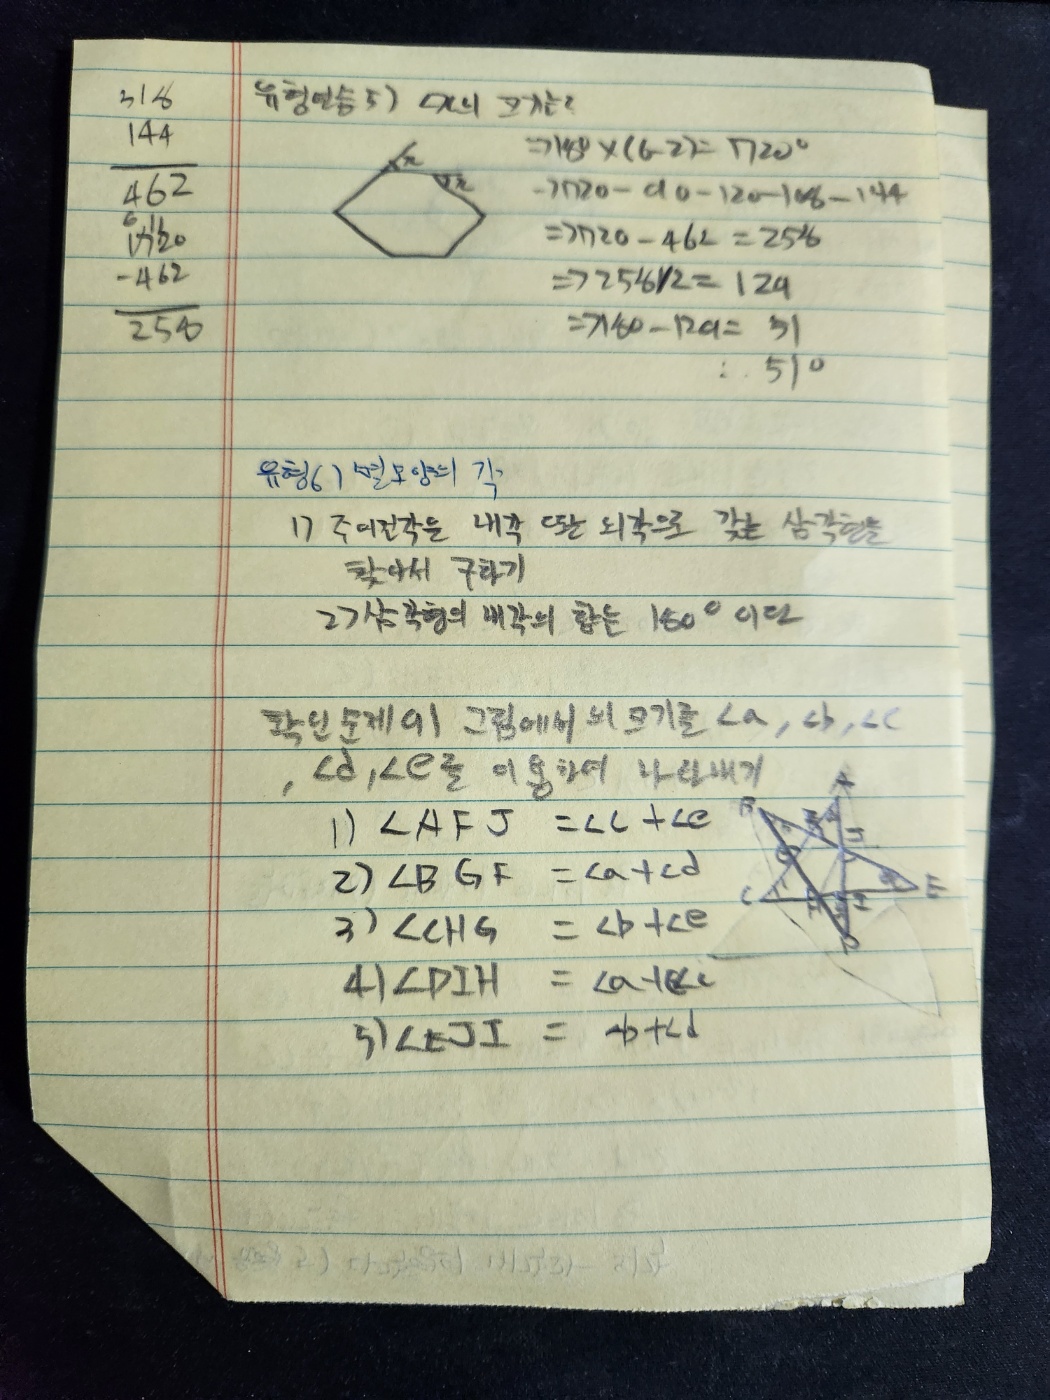 318
144
462
6 11
720
-462
258
유형연습 5) ∠x의 크기는?
x
x
=>180×(6-2)=720°
=>720-90-120-108-144
=>720-462=258
=>258/2=129
=>180-129=51
∴ 51°
유형6) 별모양의 각
1) 주어진각을 내각 또는 외각으로 갖는 삼각형을
찾아서 구하기
2) 삼각형의 내각의 합은 180° 이다
확인문제 9) 그림에서 의 크기를 ∠a, ∠b, ∠c
, ∠d, ∠e를 이용하여 나타내기
1) ∠AFJ =∠c+∠e
2) ∠BGF =∠a+∠d
3) ∠CHG =∠b+∠e
4) ∠DIH =∠a+∠c
5) ∠EJI = ∠b+∠d
A
B
J
C
E
H I
D